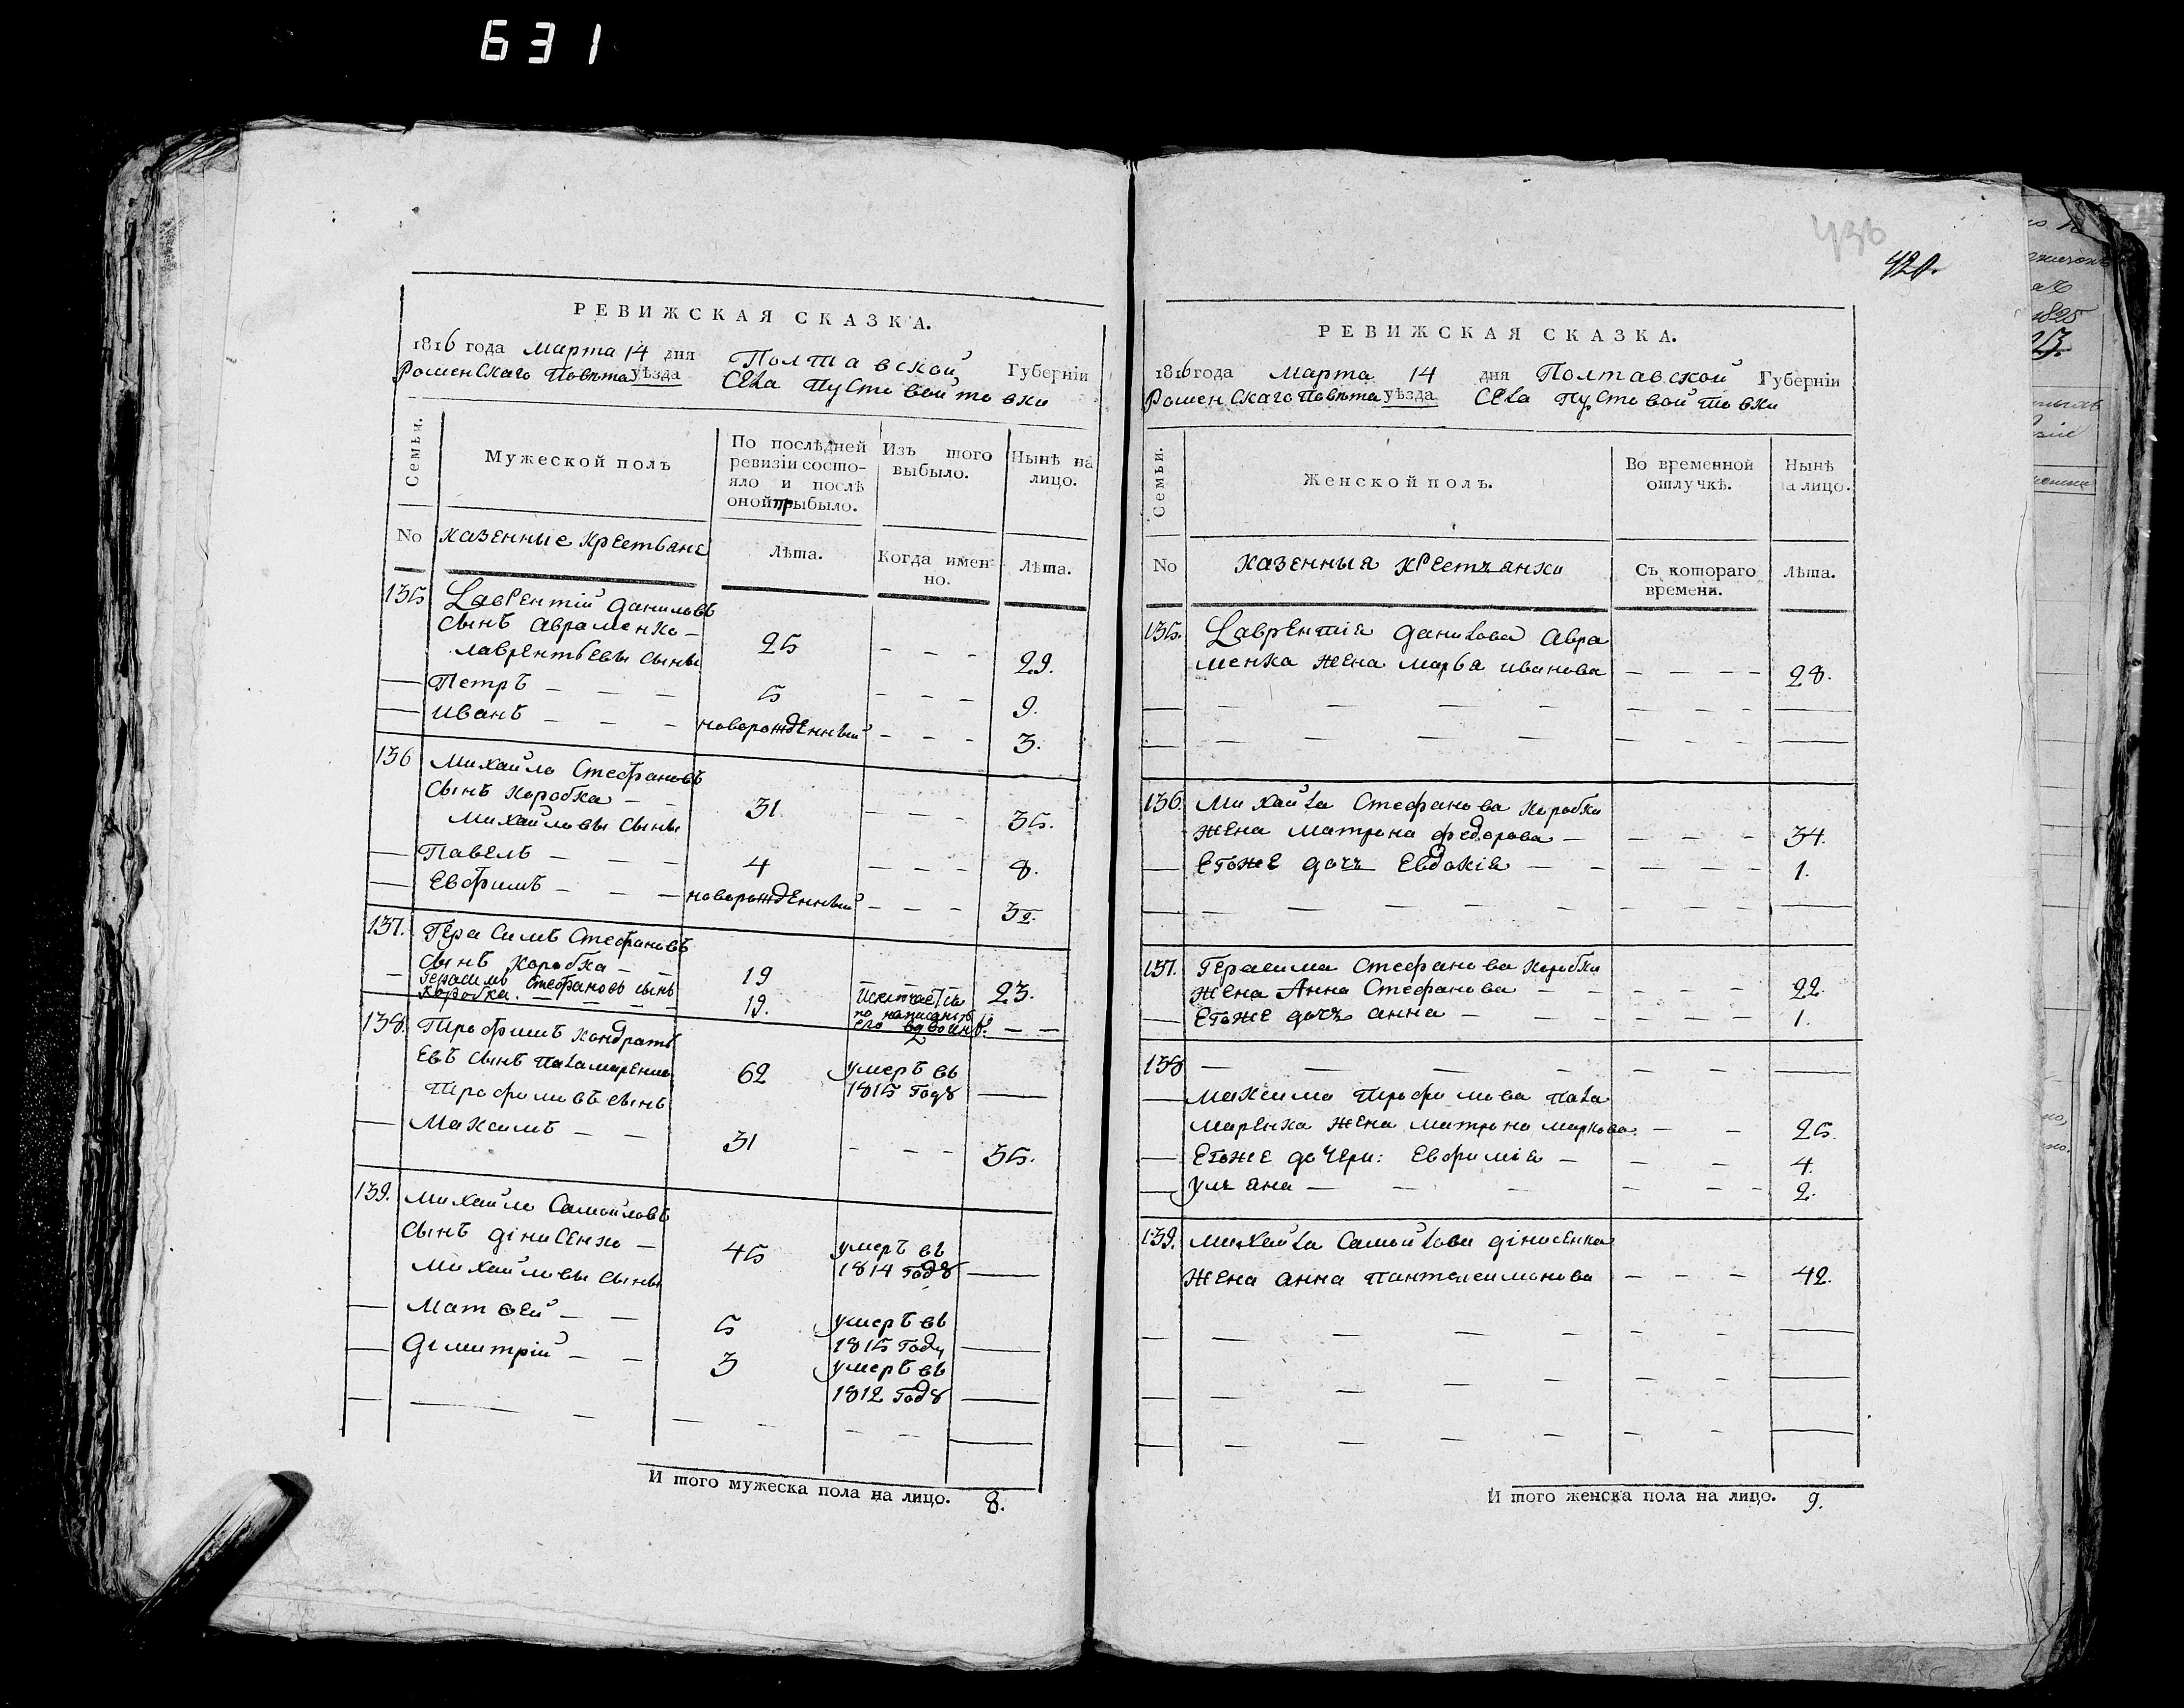 631
РЕВИЖСКАЯ СКАЗКА.
1816 года марта 14 дня Полтавской Губерніи
Роменскаго Повѣта уѣзда Села Пустовойтовки
Семьи.
Мужеской полъ
По послѣдней ревизіи состо-
яло и послѣ
оной прыбыло.
Изъ того выбыло.
Нынѣ на лицо.
No казенные крестьяне
Лѣта.
Когда имен-
но.
Лѣта.
135 Лаврентій даниловъ
сынъ авраменко — 25 — — — 29.
лаврентьевы сыны
— Петръ — — — 5 — — — 9.
— иванъ — — — новорожденный — — — 3.
136 михайло Стефановъ
сынъ коробка — — 31 — — — 35.
михайловы сыны
— Павелъ — — — 4 — — — 8.
— Евфимъ — — — новорожденный — — — 3
137. Герасимъ Стефановъ
сынъ коробка — — 19 — — — 23.
— Герасимъ Стефановъ сынъ
коробка. — — — — 19. исключается
по написанію
его вдвойнѣ. — —
138. Трофимъ кондрать
евъ сынъ паламаренко 62 умеръ въ
1815 году ——
Трофимовъ сынъ
— Максимъ — — 31 — — — 35.
139. михайло Самойловъ
сынъ дѣнисенко — 45 умеръ въ
1814 году ——
михайловы сыны
— матвей — — 5 умеръ въ
1815 году ——
— димитрій — — 3 умеръ въ
1812 году ——
И того мужеска пола на лицо. 8.
436
428.
РЕВИЖСКАЯ СКАЗКА.
1816 года марта 14 дня Полтавской Губерніи
Роменскаго Повѣта уѣзда Села Пустовойтовки
Семьи.
Женской полъ.
Во временной
отлучкѣ.
Нынѣ
на лицо.
No казенныя крестъянки
Съ котораго
времени.
Лѣта.
135. Лаврентія данилова авра
менка жена марья иванова — — — — 28.
136. михайла Стефанова коробки
жена матрона федорова — — — — — 34.
— Егоже дочъ Евдокія — — — — — 1.
137. Герасима Стефанова коробки
жена анна Стефанова — — — — — 22.
— Егоже дочъ анна — — — — — 1.
138 — — — — — — —
— максима трофимова пала
маренка жена матрона маркова. — — 25.
— Егоже дочери: Евфимія — — — 4.
— улъяна — — — — — — 2.
139. михайла Самойлова дѣнисенка
жена анна пантелеимонова — — — 42.
И того женска пола на лицо. 9.
1825